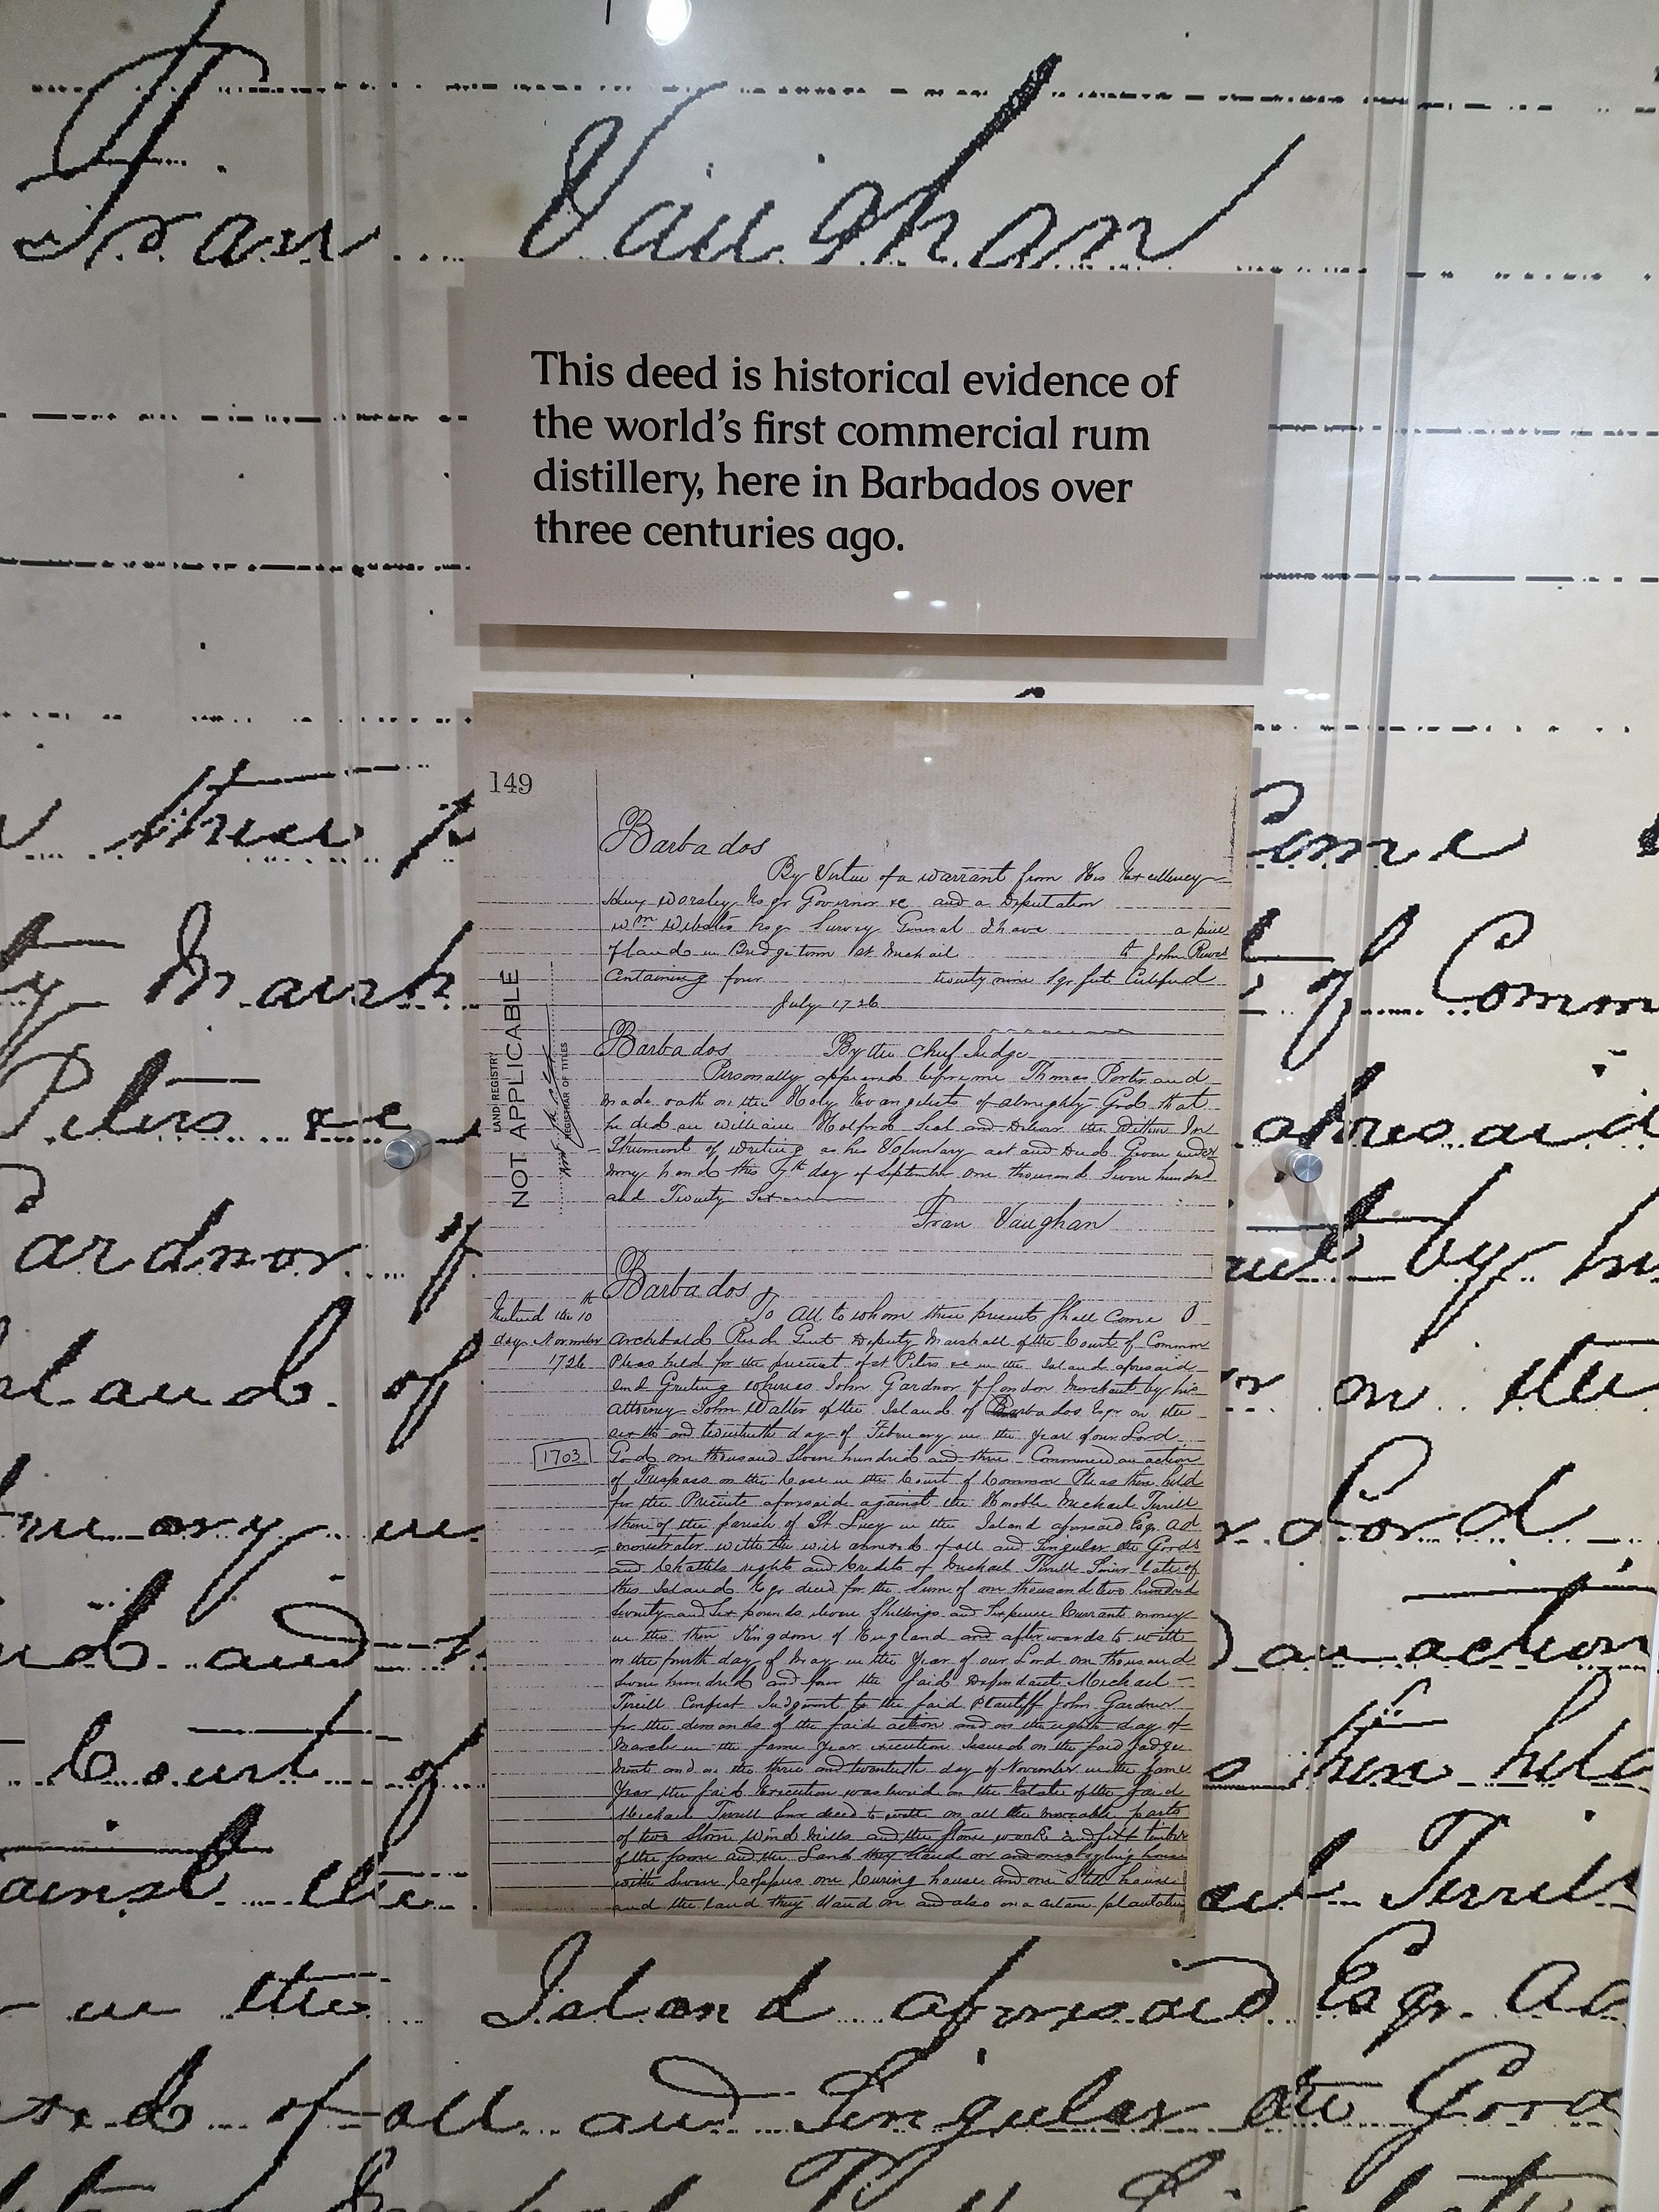 Fran Vaughan
This deed is historical evidence of
the world's first commercial rum
distillery, here in Barbados over
three centuries ago.
149
Barbados
By Virtue of a warrant from His Excellency
Henry Worsley Esqr Governor &c and a Deputation
Wm Webster Esqr Survey General I have a piece
of land in Bridgetown St Michail to John
Containing four twenty nine Sqr feet
July 1726
LAND REGISTRY
NOT APPLICABLE
REGISTRAR OF TITLES
Barbados By the Chief Judge
Personally appeared before me Thomas Porter and
made oath on the Holy Evangelists of almighty God that
he did see William Holford Seal and Deliver the Within In
=strument of writing as his Voluntary act and Deed Given under
my hand this 7th day of September One thousand Seven hundred
and Twenty Six
Fran Vaughan
Barbados
To All to whom these presents Shall Come
10th
day November
1726
Archibald Gent Deputy Marshall of the Court of Common
Pleas held for the precinct of St Peters &c in the Island aforesaid
Send Greeting whereas John Gardnor of London Merchant by his
Attorney John Walter of the Island of Barbados Esqr on the
sixth and twentieth day of February in the Year of our Lord
1703
God one thousand Seven hundred and three Commenced an action
of Trespass on the Case in the Court of Common Pleas then held
for the Precincts aforesaid against the Honble Michael Terrill
then of the parish of St Lucy in the Island aforesaid Esqr Ad
=ministrator with the will annexed of all and Singular the Goods
and Chattels rights and Credits of Michael Terrill Senr late of
this Island Esqr deced for the Sum of one thousand two hundred
Seventy and Six pounds eleven Shillings and Sixpence Currant money
in the then Kingdom of England and afterwards to witt
on the fourth day of May in the Year of our Lord One thousand
Seven hundred and four the Said Defendant Michael
Terrill Confest Judgment to the said Plantiff John Gardnor
for the demands of the said action and on the eighth day of
March in the Same Year execution Issued on the Said Judge
ment and on the three and twentieth day of November in the Same
Year the Said Execution was levied on the Estate of the Said
Michael Terrill Senr deced to witt on all the moveable parts
of two Stone Wind Mills and the Stone work and fixt timber
of the same and the Land they Stand on and one boyling house
with Seven Coppers one Curing house and one Still house
and the Land they Stand on and also on a certain plantation